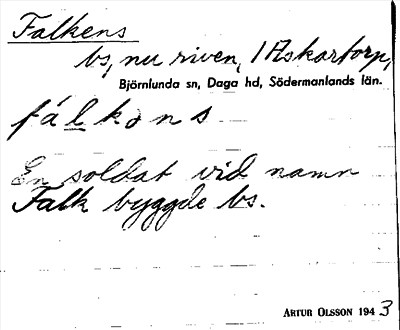 Falkens
bs, nu riven, 1 Åskartorp,
Björnlunda sn, Daga hd, Södermanlands län.
fálkəns
En soldat vid namn
Falk byggde bs.
Artur Olsson 1943